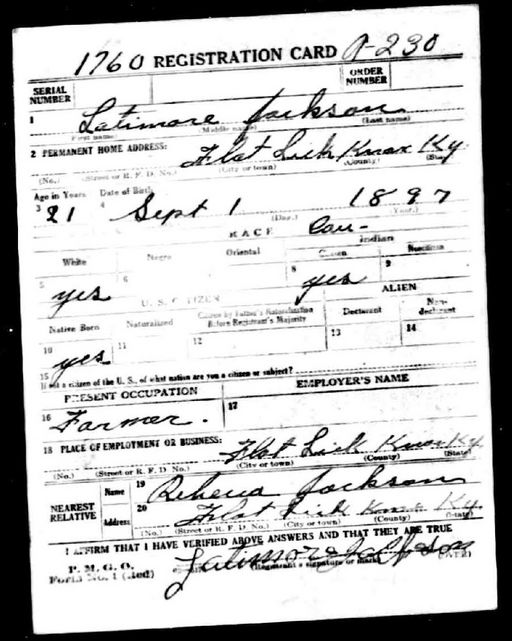 1760 REGISTRATION CARD A-230
SERIAL NUMBER ORDER NUMBER
1 Latimore Jackson
First name) (Middle name) (Last name)
2 PERMANENT HOME ADDRESS: Flat Lick Knox Ky
(No.) (Street or R. F. D. No.) (City or town) (County) (State)
Age in Years Date of Birth
3 21 4 Sept 1 1897
(Day.) (Year.)
RACE Cau-
White Negro Oriental Indian
Citizen Noncitizen
5 yes 6 8 yes 9
U. S. CITIZEN ALIEN
Native Born Naturalized Citizen by Father's Naturalization Before Registrant's Majority Declarant Non-declarant
10 yes 11 12 13 14
15 If not a citizen of the U. S., of what nation are you a citizen or subject?
PRESENT OCCUPATION EMPLOYER'S NAME
16 Farmer. 17
18 PLACE OF EMPLOYMENT OR BUSINESS: Flat Lick Knox Ky.
(No.) (Street or R. F. D. No.) (City or town) (County) (State)
NEAREST RELATIVE Name 19 Jackson
Address 20 Flat Lick Knox Ky.
(No.) (Street or R. F. D. No.) (City or town) (County) (State)
I AFFIRM THAT I HAVE VERIFIED ABOVE ANSWERS AND THAT THEY ARE TRUE
P. M. G. O.
Form No. 1 (Red) Latimore Jackson
(Registrant's signature or mark)